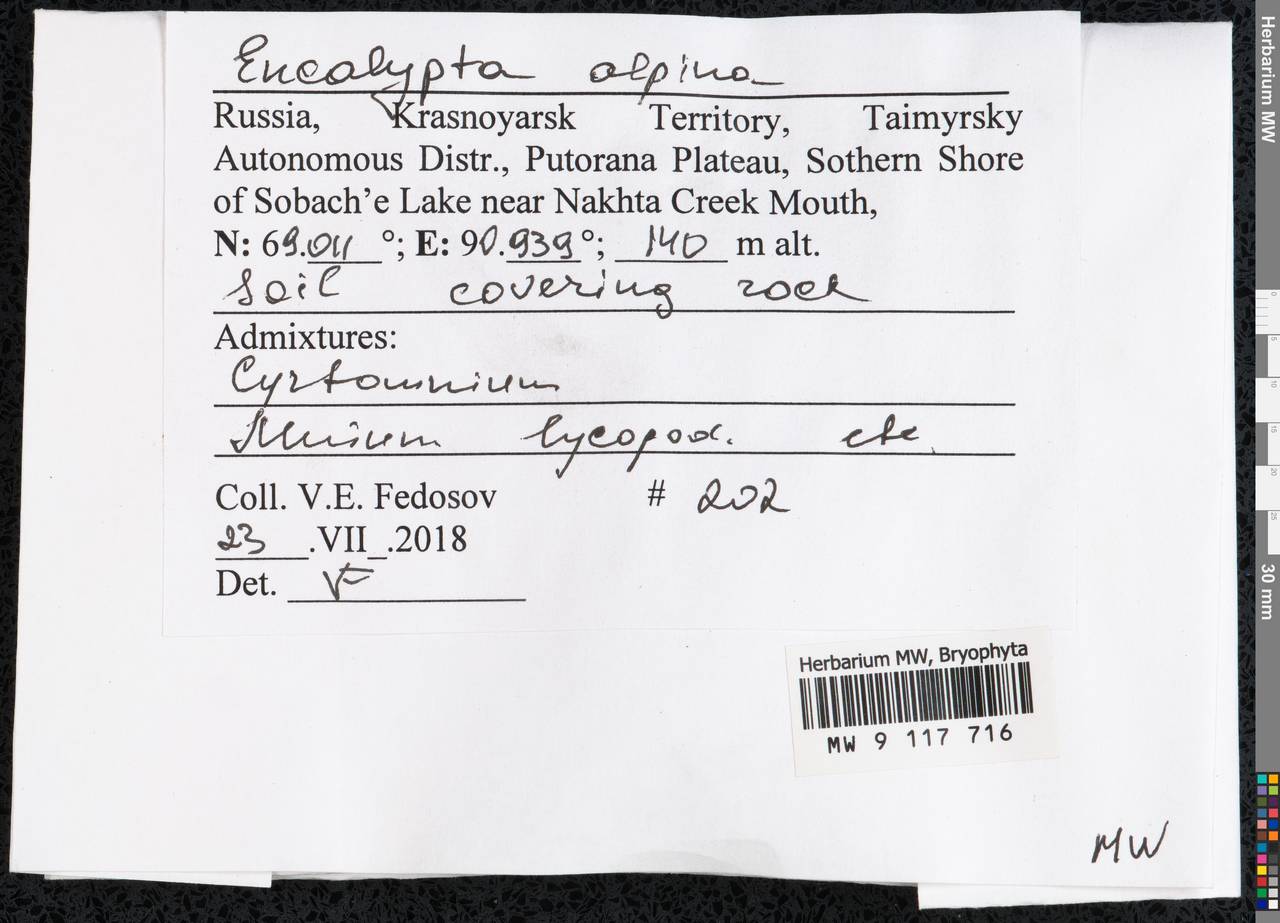 Encalypta alpina
Russia, Krasnoyarsk Territory, Taimyrsky
Autonomous Distr., Putorana Plateau, Sothern Shore
of Sobach’e Lake near Nakhta Creek Mouth,
N: 69.011 °; E: 90.939°; 140 m alt.
Soil covering rock
Admixtures:
Cyrtomnium
Mnium lycopod. etc.
Coll. V.E. Fedosov # 202
23.VII_.2018
Det. VF
Herbarium MW, Bryophyta
MW 9 117 716
MW
Herbarium MW
0
5
10
15
20
25
30 mm